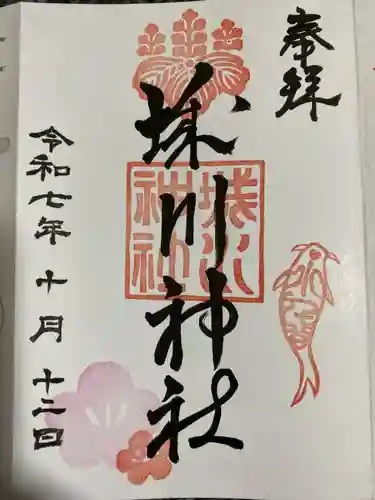 奉拝
城川神社
城川神社
令和七年十月十二日